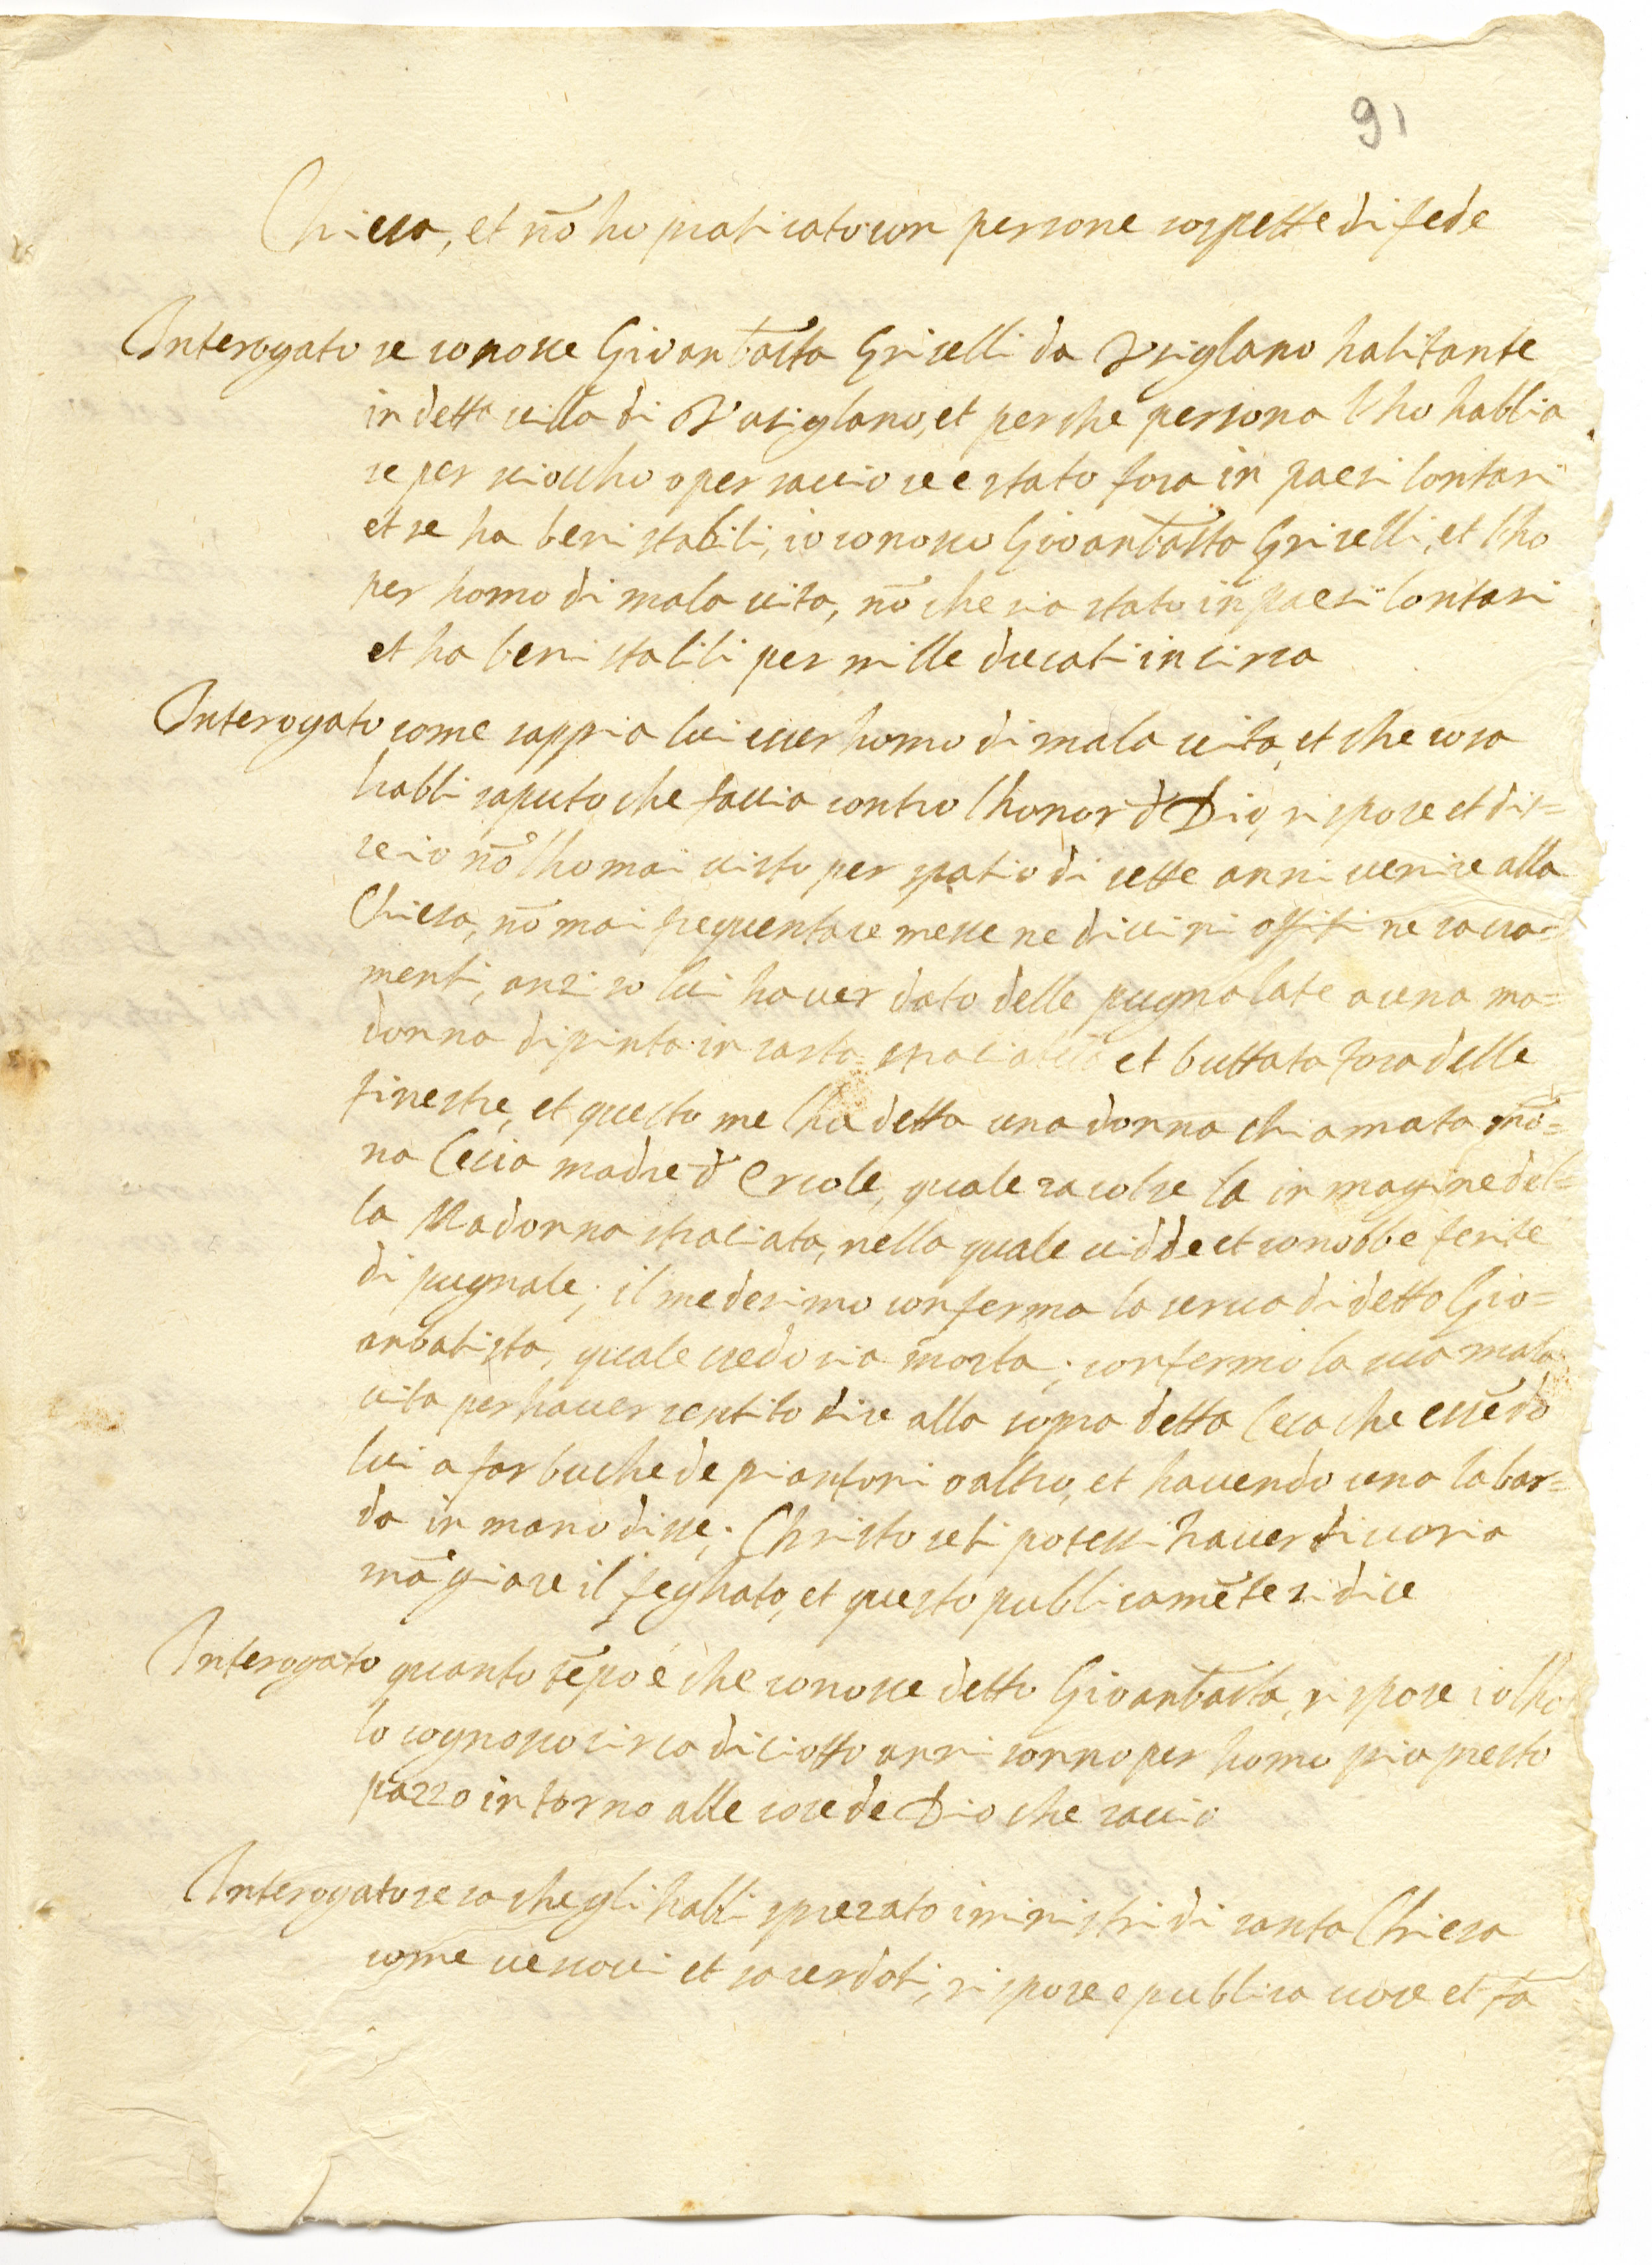 91
Chiesa, et nõ ho praticato con persone sospette di fede
Interogato se conosce Giovanbãtta Griselli da Vsiglano habitante
in detta villa di Vusiglano, et per che persona l'ho habbia
se per sciocho o per savio se e stato fora in paesi lontani
et se ha beni stabili, io conosco Giovanbãtta Griselli, et l'ho
per homo di mala vita, nõ che sia stato in paesi lontani
et ha beni stabili per mille ducati in circa
Interogato come sappia lui esser homo di mala vita, et che cosa
habbi saputo che faccia contro l'honor d Dio, rispose et dis=
se io nõ l'ho mai visto per spatio di sette anni venire alla
Chiesa, nõ mai frequentare messe ne divini offiti ne sacra=
menti, anzi so lui haver dato delle pugnalate a una ma=
donna dipinta in carta et buttata fora delle
finestre, et questo me l'ha detta una donna chiamata mõ=
na Cecia madre d Ercole, quale racolse la in magine del=
la Madonna straciata, nella quale vidde et conobbe ferite
di pugnale; il medesimo conferma la serva di detto Gio=
anbatista, quale credo sia morta; confermo la sua mala
vita per haver sentito dire alla sopra detta Ceca che essẽdo
lui a far buche de piantoni o altro, et havendo una labar=
da in mano disse; Christo se ti potessi haver ti voria
mãgiare il feghato, et questo publicamẽte si dice
Interogato quanto tẽpo è che conosce detto Giovanbãtta, rispose io lho
lo cognosco circa diciotto anni sonno per homo piu presto
pazzo in torno alle cose de Dio che savio
Interogato se sa che gli habbi sprezato i ministri di santa Chiesa
come vescovi et sacerdoti, rispose e publica voce et fa